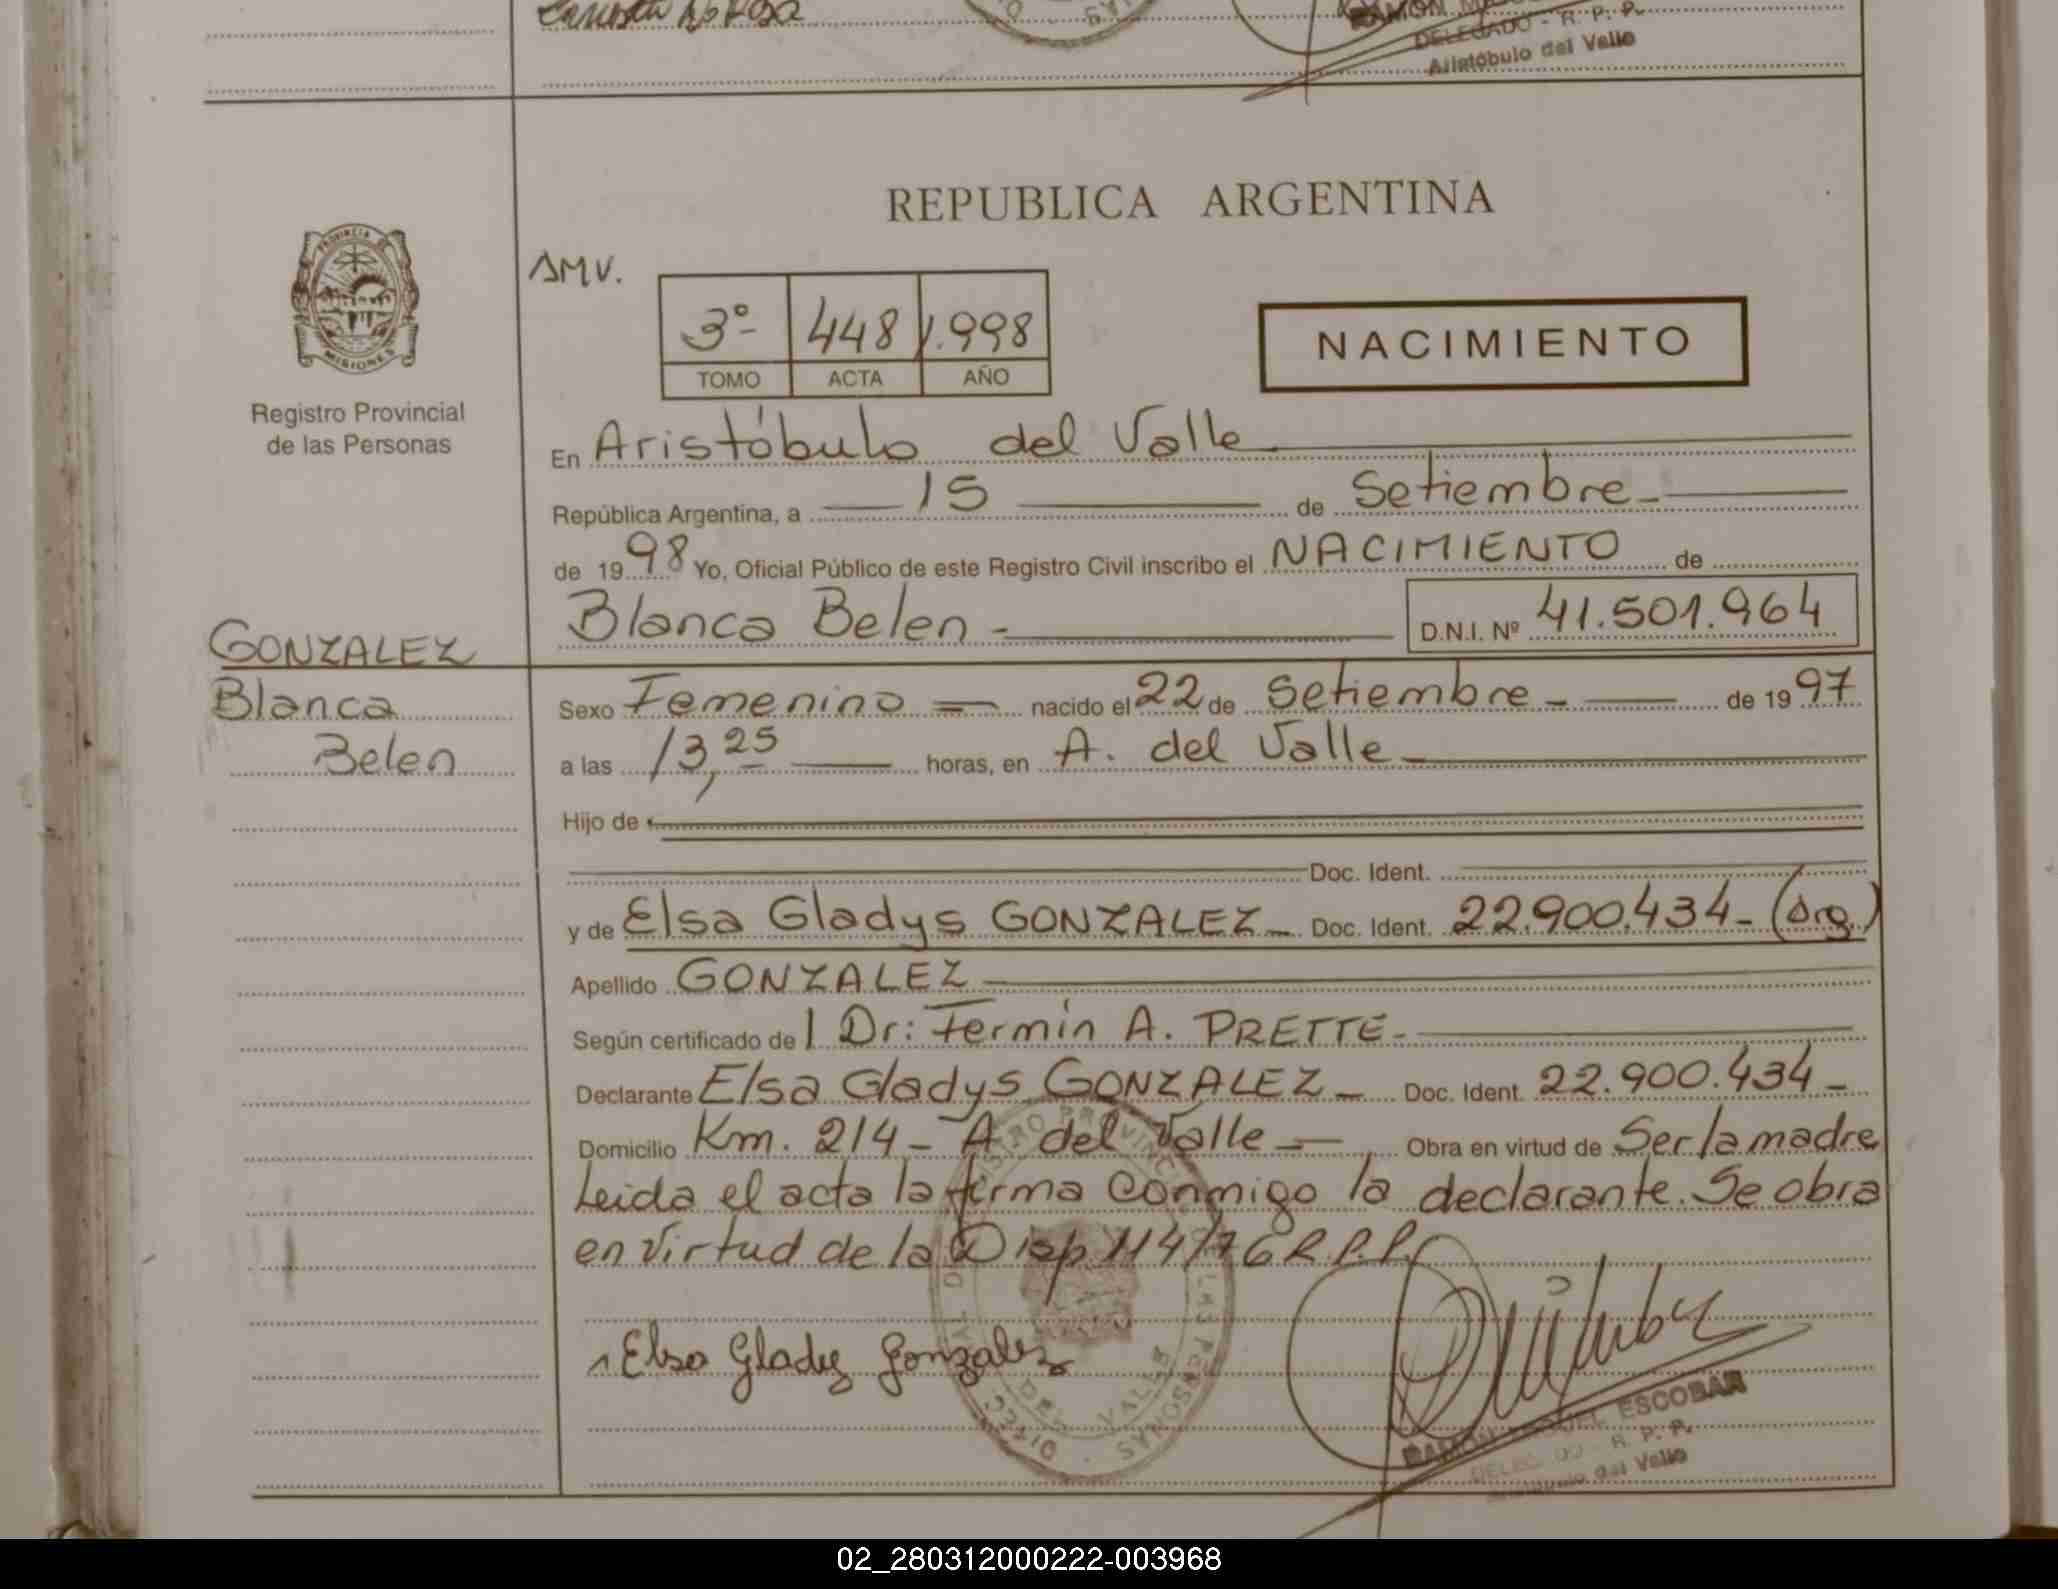 DELEGADO - R. P. P.
Aristóbulo del Valle
REPUBLICA ARGENTINA
PROVINCIA DE
MISIONES
Registro Provincial
de las Personas
AMV.
3º 448 1.998
TOMO ACTA AÑO
NACIMIENTO
En Aristóbulo del Valle
República Argentina, a 15 de Setiembre
de 1998 Yo, Oficial Público de este Registro Civil inscribo el NACIMIENTO de
Blanca Belen - D.N.I. Nº 41.501.964
GONZALEZ
Blanca
Belen
Sexo Femenino nacido el 22 de Setiembre de 1997
a las 13,25 horas, en A. del Valle
Hijo de
Doc. Ident.
y de Elsa Gladys GONZALEZ Doc. Ident. 22.900.434 - (Arg.)
Apellido GONZALEZ
Según certificado de l Dr: Fermín A. PRETTE
Declarante Elsa Gladys GONZALEZ Doc. Ident. 22.900.434
Domicilio Km. 214 - A del Valle Obra en virtud de Ser la madre
Leida el acta la firma conmigo la declarante. Se obra
en virtud de la Disp. 114/76 R.P.P.
Elsa Gladys Gonzalez
RAMON MIGUEL ESCOBAR
DELEGADO - R. P. P.
Aristóbulo del Valle
02_280312000222-003968